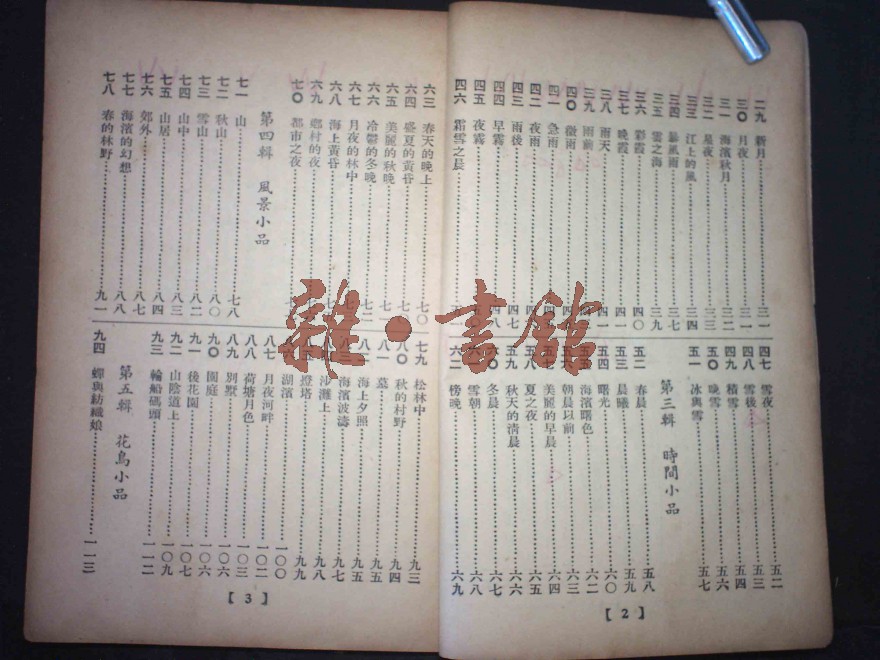 二九 新月……三一
三〇 月夜……三一
三一 海濱秋月……三二
三二 星夜……三三
三三 江上的風……三四
三四 暴風雨……三七
三五 雲之海……三九
三六 彩霞……四〇
三七 晚霞……四一
三八 雨天……四一
三九 雨前……
四〇 微雨……
四一 急雨……
四二 夜雨……
四三 雨後……四七
四四 早霧……四八
四五 夜霧……
四六 霜雪之晨……
四七 雪夜……五二
四八 雪後……五三
四九 積雪……五四
五〇 晚雪……五六
五一 冰與雪……五七
第三輯 時間小品
五二 春晨……五八
五三 晨曦……五九
五四 曙光……六〇
海濱曙色……六二
朝晨以前……六三
美麗的早晨……六四
五八 夏之夜……六五
五九 秋天的清晨……六六
六〇 冬晨……六七
六一 雪朝……六八
六二 傍晚……六九
[2]
六三 春天的晚上……七〇
六四 盛夏的黃昏……
六五 美麗的秋晚……
六六 冷鬱的冬晚……七二
六七 月夜的林中……
六八 海上黃昏……
六九 鄉村的夜……
七〇 都市之夜……
第四輯 風景小品
七一 山……七八
七二 秋山……八〇
七三 雪山……八二
七四 山中……八三
七五 山居……八四
七六 郊外……八七
七七 海濱的幻想……八八
七八 春的林野……九一
七九 松林中……九三
八〇 秋的村野……九四
八一 墓……九五
八二 海上夕照……九六
海濱波濤……九七
沙灘上……九八
燈塔……九九
湖濱……一〇〇
八七 月夜河畔……一〇二
八八 荷塘月色……一〇三
八九 別墅……一〇六
九〇 園庭……一〇六
九一 後花園……一〇七
九二 山陰道上……一〇九
九三 輪船碼頭……一一二
第五輯 花鳥小品
九四 蟬與紡織娘……一一三
[3]
雜·書館